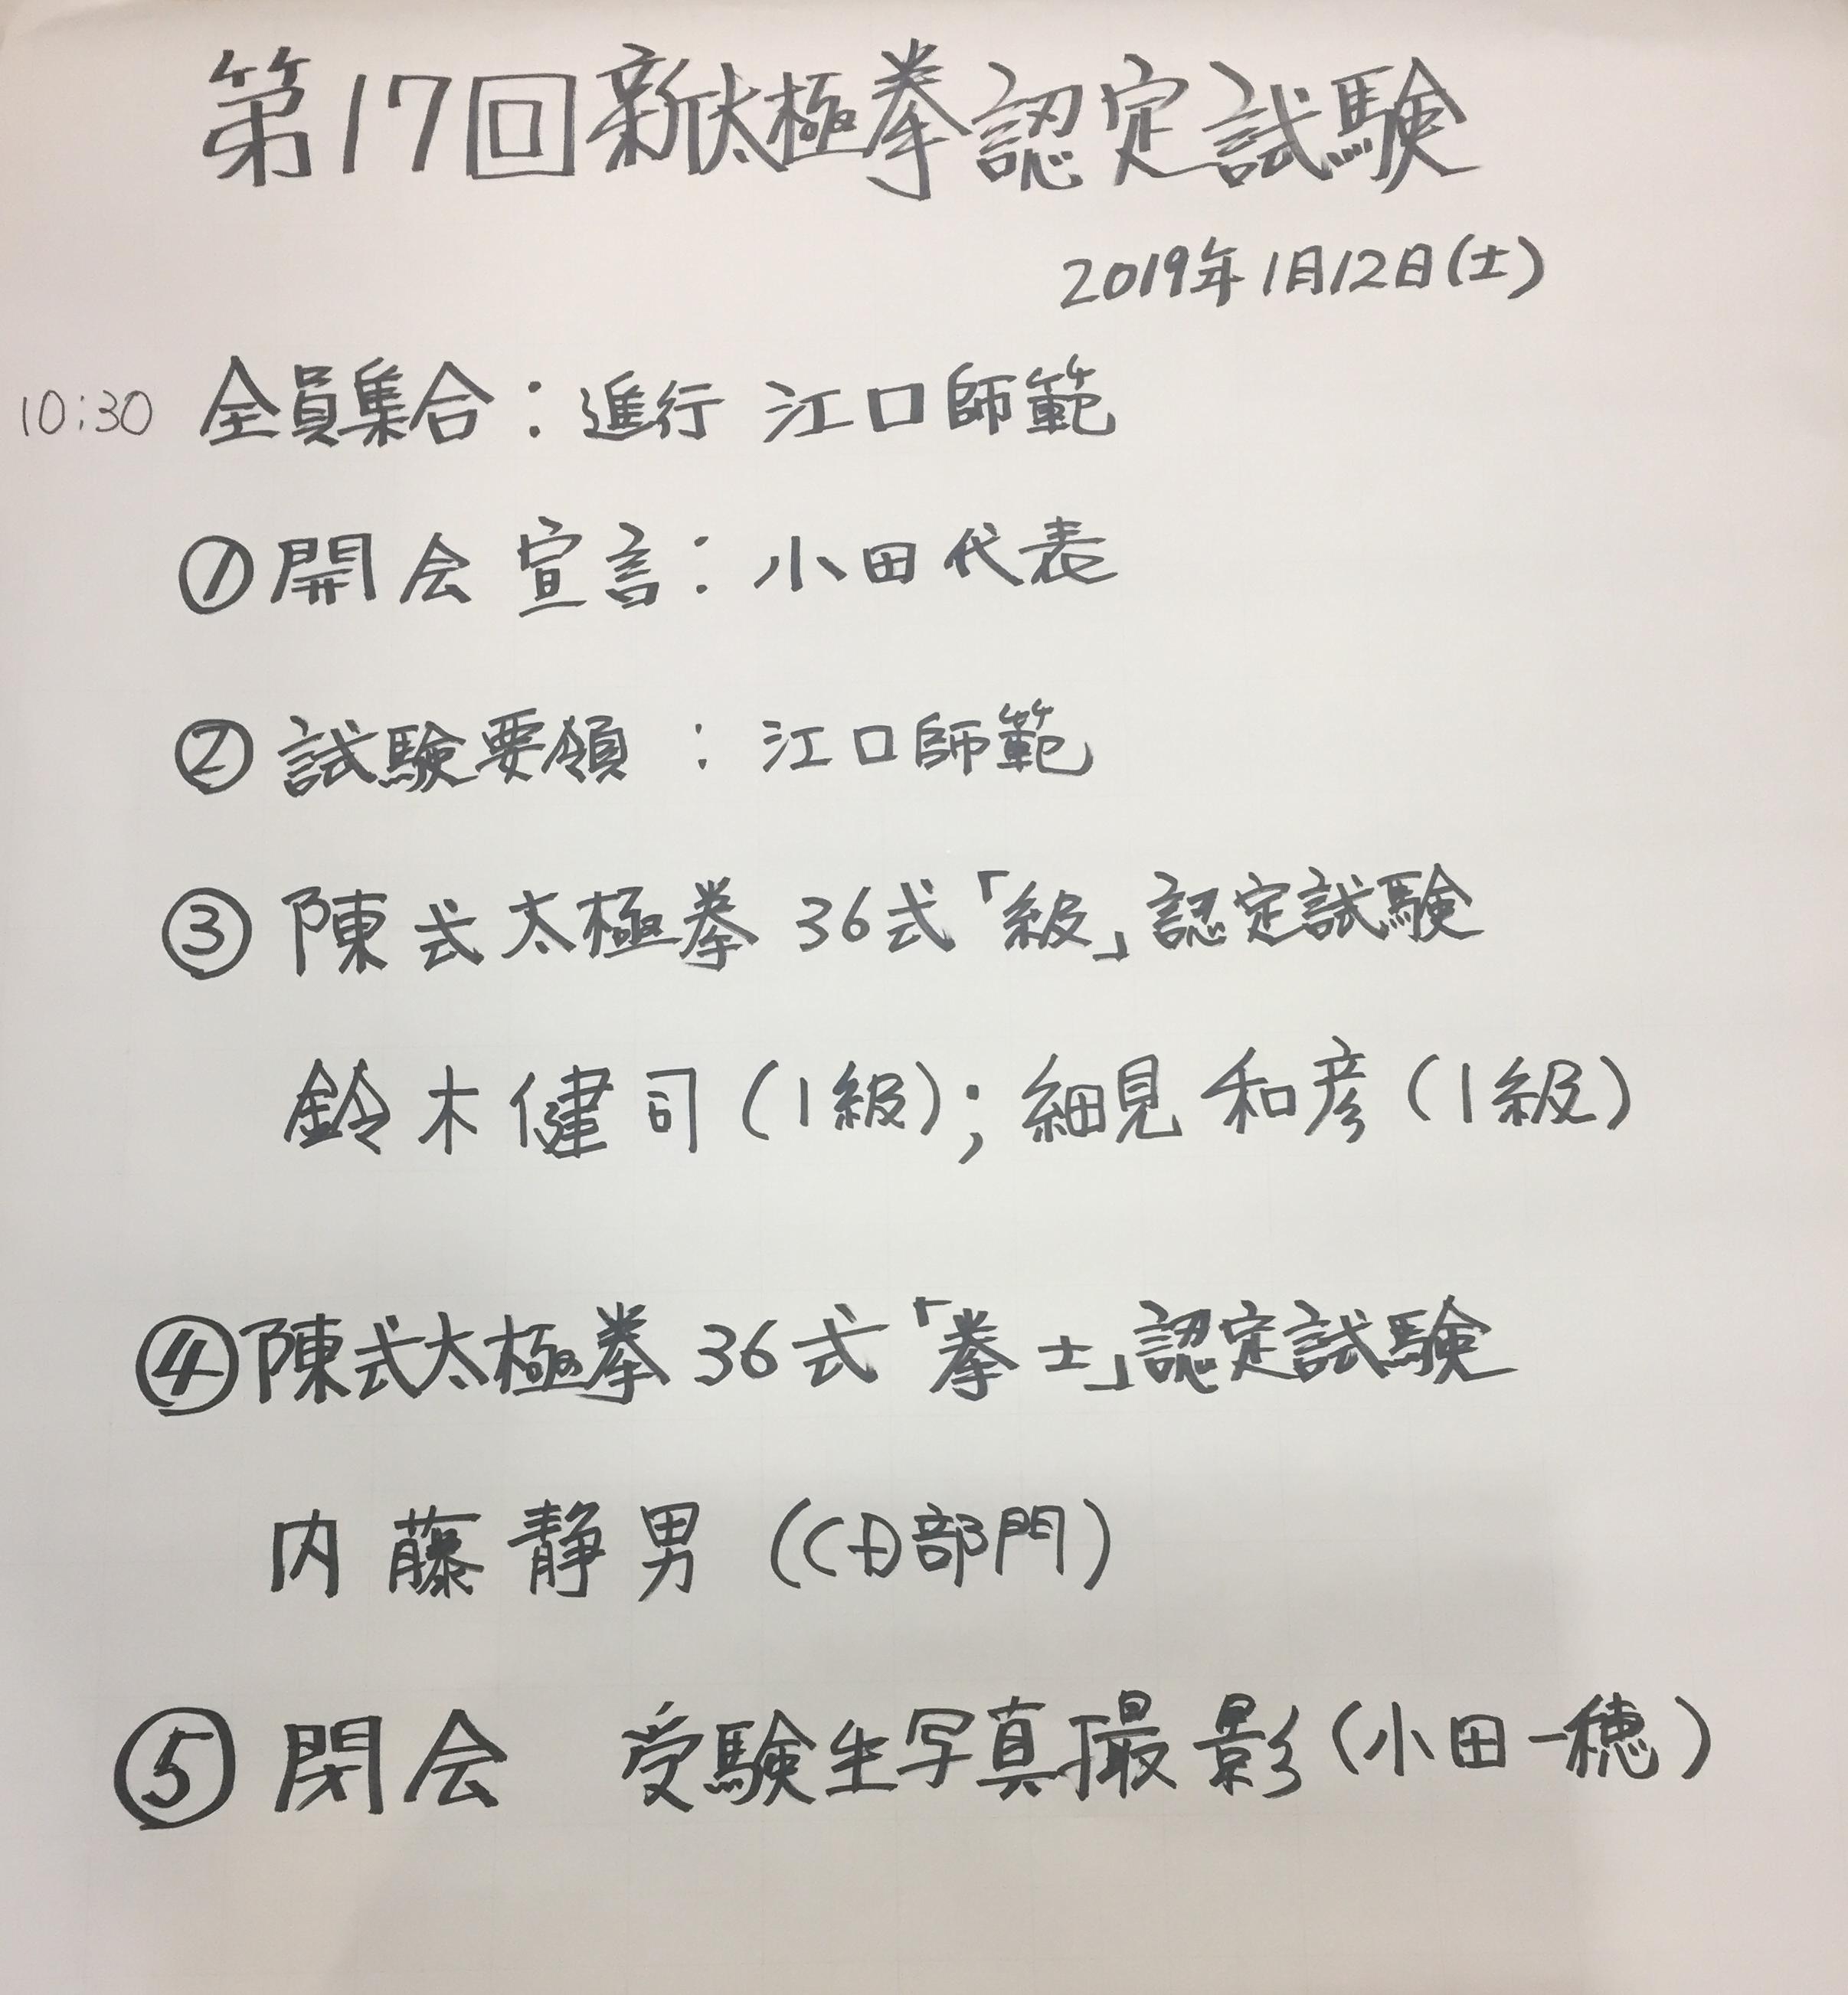 第17回新太極拳認定試験
2019年1月12日(土)
10:30 全員集合:進行 江口師範
①開会宣言:小田代表
②試験要領:江口師範
③陳式太極拳 36式「級」認定試験
鈴木健司(1級);細見和彦(1級)
④陳式太極拳 36式「拳士」認定試験
内藤静男(CD部門)
⑤閉会 受験生写真撮影(小田一穂)